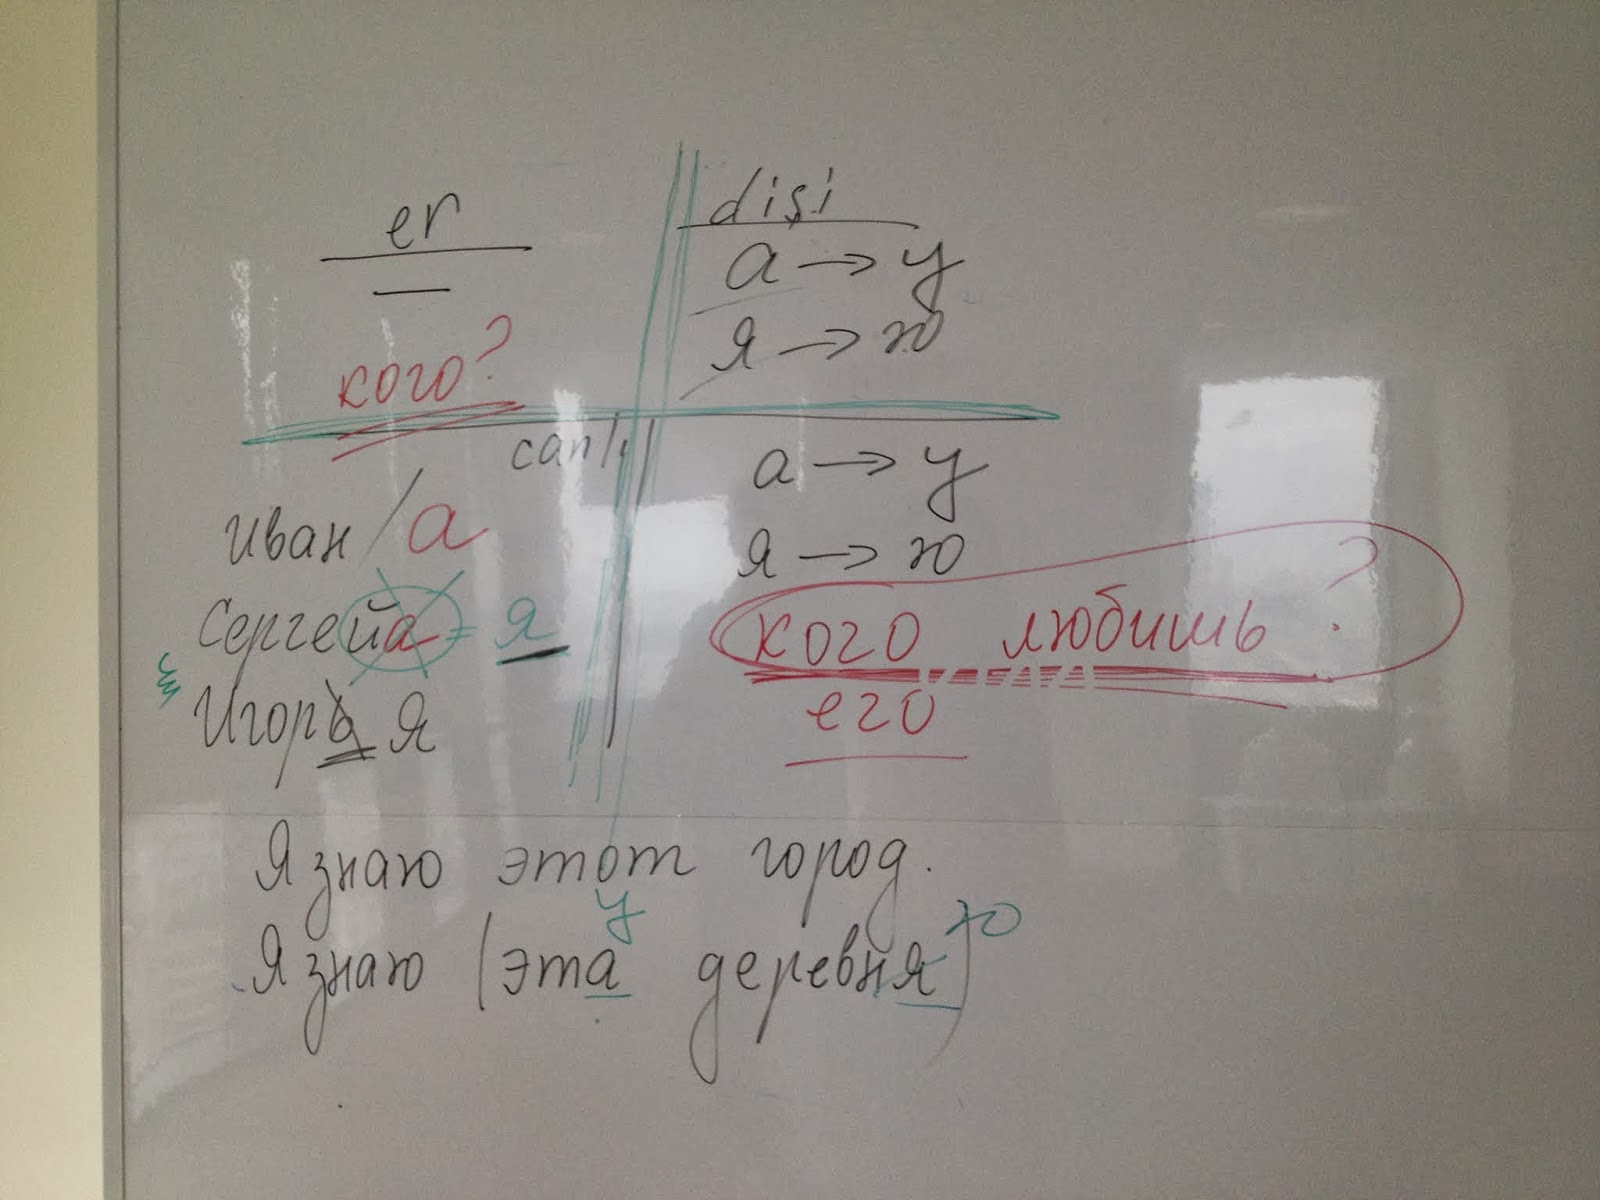 er
dişi
—
а → у
я → ю
кого?
canlı
а → у
Иван/а
я → ю
Сергейа = я
кого любишь?
Игорь я
его
Я знаю этот город.
у
ю
Я знаю (эта деревня)